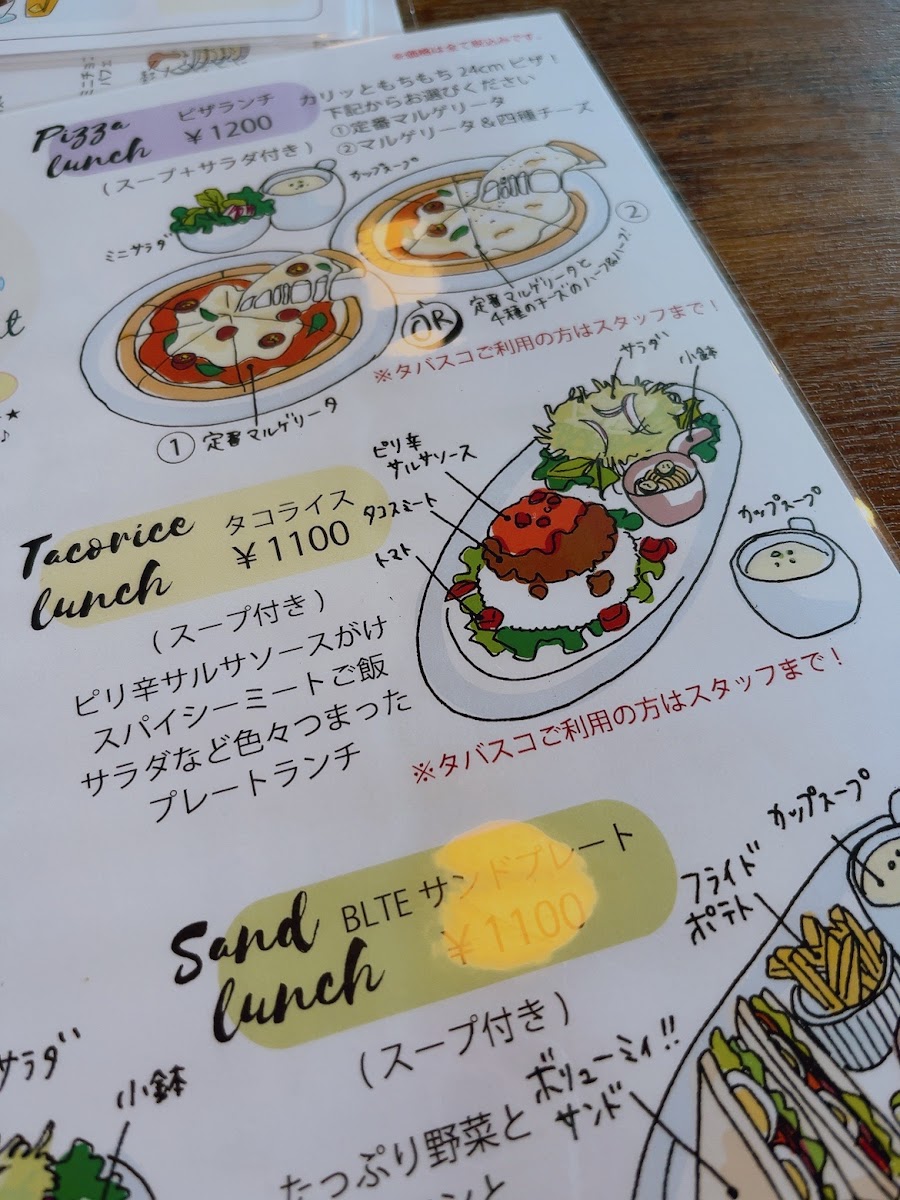 ミニチョコ
パフェ
※価格は全て税込みです。
Pizza
lunch
ピザランチ
¥1200
(スープ+サラダ付き)
カリッともちもち 24cm ピザ!
下記からお選びください
①定番マルゲリータ
②マルゲリータ&四種チーズ
カップスープ
ミニサラダ
②
定番マルゲリータと
4種のチーズのハーフ&ハーフ!
OR
① 定番マルゲリータ
※タバスコご利用の方はスタッフまで!
Tacorice
lunch
タコライス
¥1100
(スープ付き)
ピリ辛サルサソースがけ
スパイシーミートご飯
サラダなど色々つまった
プレートランチ
サラダ
小鉢
ピリ辛
サルサソース
タコスミート
トマト
カップスープ
※タバスコご利用の方はスタッフまで!
Sand
lunch
BLTE サンドプレート
¥1100
(スープ付き)
たっぷり野菜と
カップスープ
フライド
ポテト
ボリューミィ!!
サンド
サラダ
小鉢